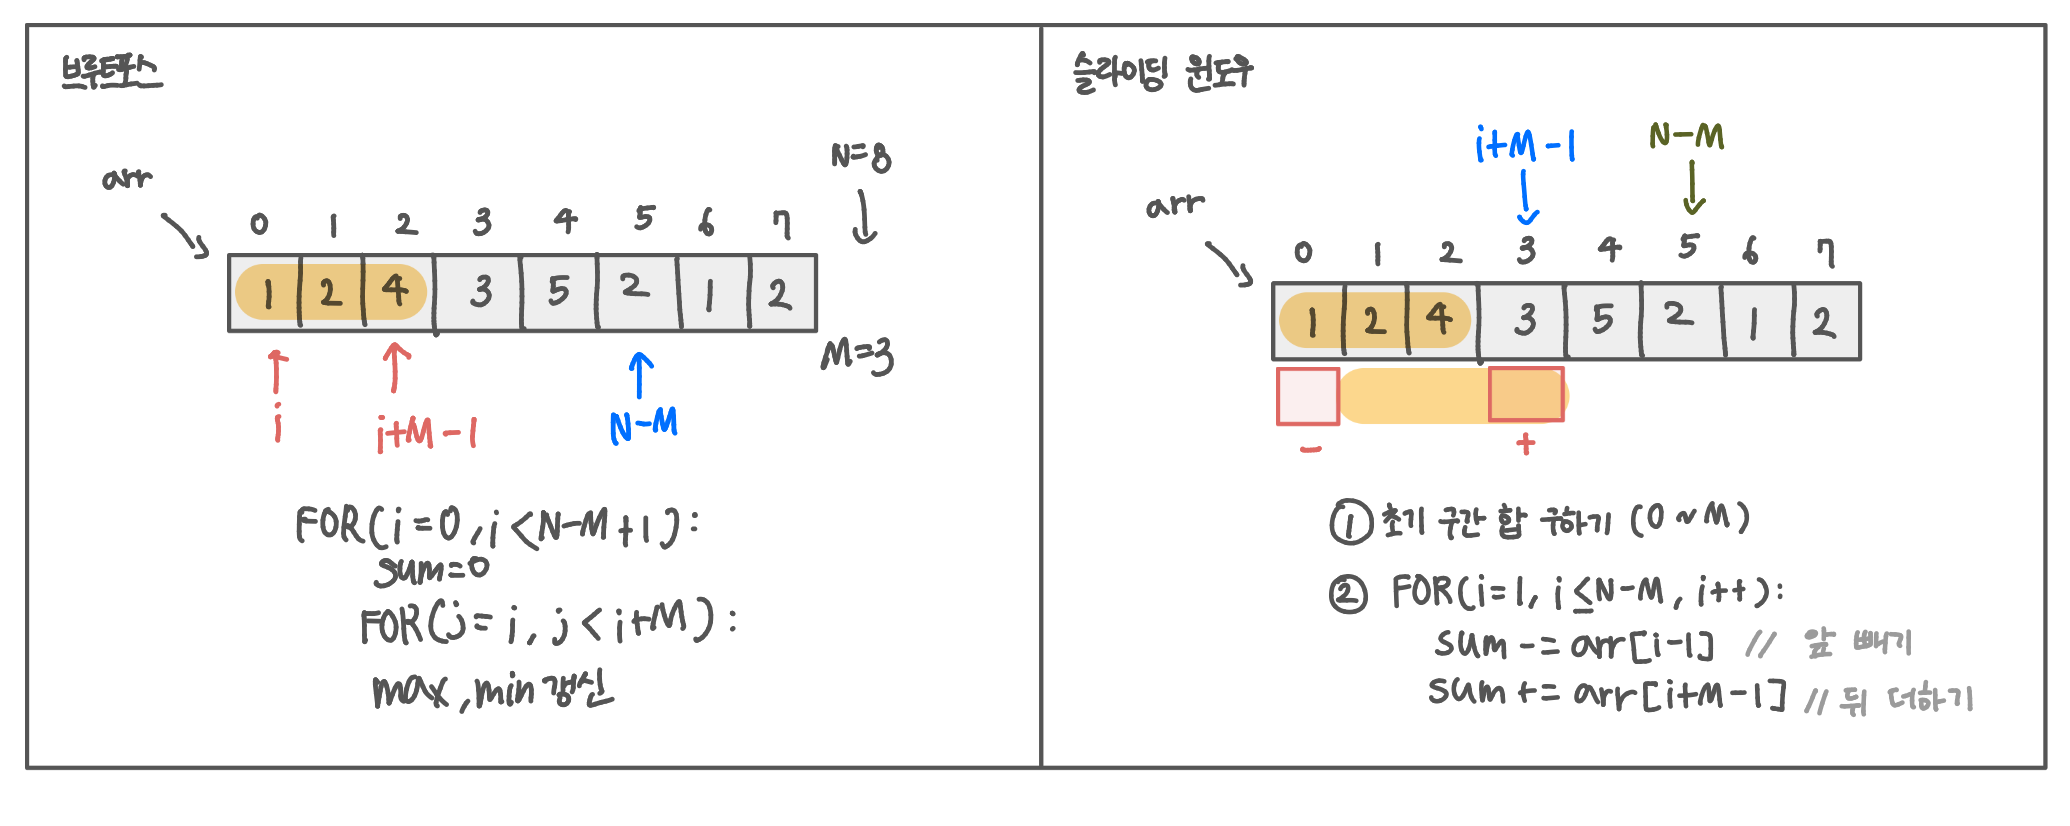 브루트포스
N=8
arr
0 1 2 3 4 5 6 7
1 2 4 3 5 2 1 2
M=3
i
i+M-1
N-M
FOR(i=0, i<N-M+1):
sum=0
FOR(j=i, j<i+M):
max, min 갱신
슬라이딩 윈도우
i+M-1
N-M
arr
0 1 2 3 4 5 6 7
1 2 4 3 5 2 1 2
- +
① 초기 구간 합 구하기 (0~M)
② FOR(i=1, i≤N-M, i++):
sum -= arr[i-1] // 앞 빼기
sum += arr[i+M-1] // 뒤 더하기